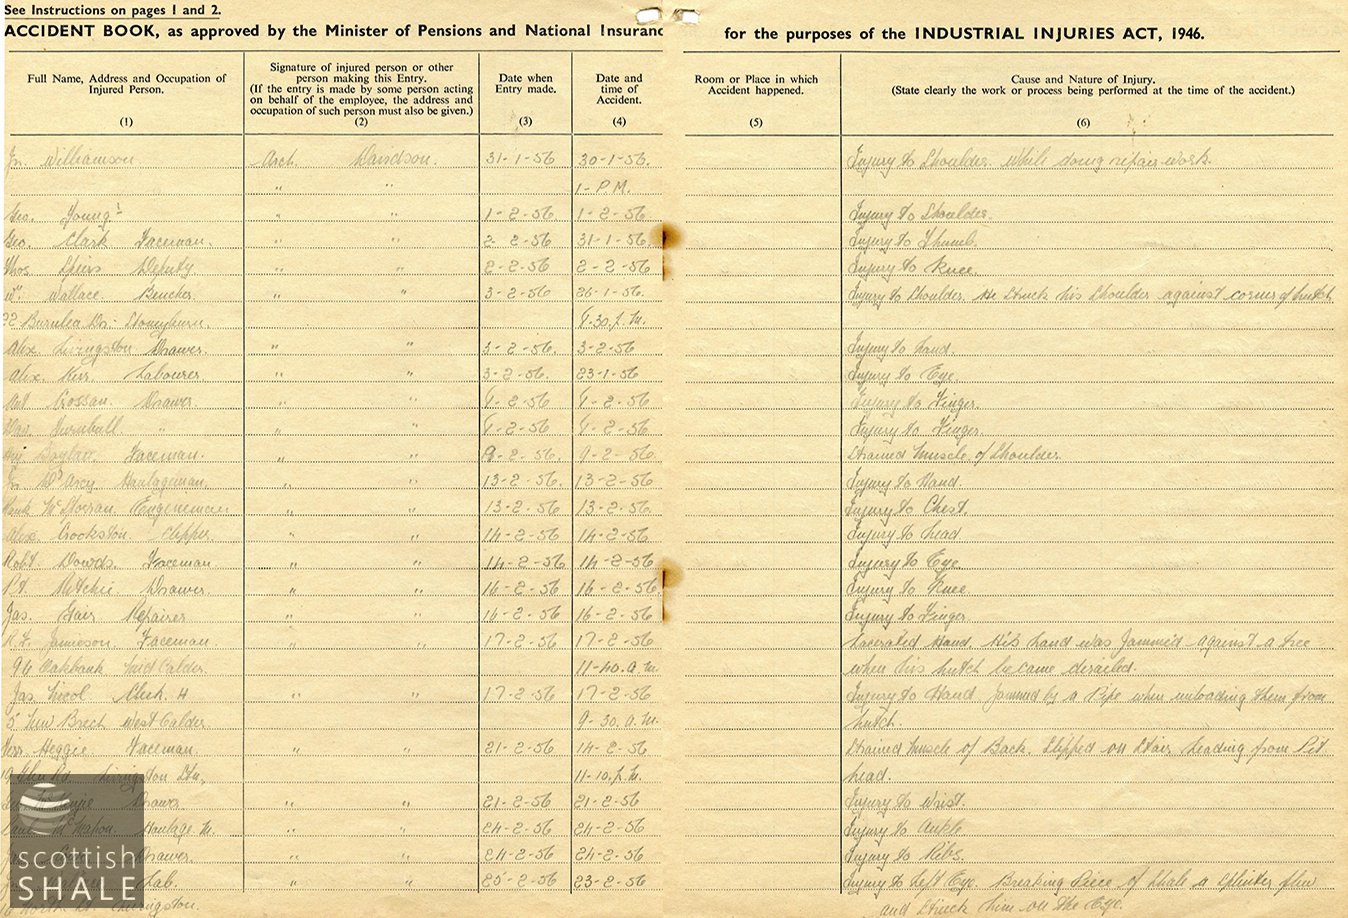 See Instructions on pages 1 and 2.
ACCIDENT BOOK, as approved by the Minister of Pensions and National Insuranc for the purposes of the INDUSTRIAL INJURIES ACT, 1946.
Full Name, Address and Occupation of
Injured Person.
(1)
Signature of injured person or other
person making this Entry.
(If the entry is made by some person acting
on behalf of the employee, the address and
occupation of such person must also be given.)
(2)
Date when
Entry made.
(3)
Date and
time of
Accident.
(4)
Room or Place in which
Accident happened.
(5)
Cause and Nature of Injury.
(State clearly the work or process being performed at the time of the accident.)
(6)
Jn. Williamson. Arch. Davidson. 31-1-56 30-1-56. Injury to Shoulder. While doing repair work.
" " 1-P.M.
Geo. Young " " 1-2-56 1-2-56. Injury to Shoulder.
Geo. Clark Faceman. " " 2-2-56 31-1-56. Injury to Thumb.
Thos. Spiers Deputy " " 2-2-56 2-2-56 Injury to Knee.
Wm. Wallace. Bencher. " " 3-2-56 26-1-56. Injury to Shoulder. He Struck his Shoulder against corner of hutch
22 Burnlea Dr. Stoneyburn. 4-30.p.m.
Alex. Livingston Drawer. " " 3-2-56. 3-2-56 Injury to hand.
Alex. Kerr Labourer " " 3-2-56. 23-1-56 Injury to Eye.
Crossan. Drawer. " " 4-2-56 4-2-56. Injury to Finger.
Turnbull. " " " 4-2-56 4-2-56 Injury to Finger.
Faceman. " " 9-2-56. 9-2-56. Strained Muscle of Shoulder.
D'Arcy Haulageman. " " 13-2-56. 13-2-56 Injury to Hand.
Engineman " " 13-2-56 13-2-56. Injury to Chest.
Alex. Crookston. Clipper. " " 14-2-56 14-2-56. Injury to head
Robt. Dowds. Faceman " " 14-2-56 14-2-56 Injury to Eye
Ritchie Drawer. " " 16-2-56 16-2-56. Injury to Knee.
Jas. Stair Repairer " " 16-2-56 16-2-56 Injury to Finger
R.F. Jamieson. Faceman " " 17-2-56 17-2-56 Lacerated Hand. His hand was Jammed against a tree
96 Oakbank Mid Calder. 11-40.a.m. when his hutch became derailed.
Jas. Nicol. Clerk. " " 17-2-56 17-2-56 Injury to Hand Jammed by a Pipe when unloading them from
5 New Breich West Calder. 9-30.a.m. hutch.
Heggie Faceman. " " 21-2-56 14-2-56 Strained Muscle of Back. Slipped on Stair Leading from Pit
Livingston Stn. 11-10.p.m. head.
Drawer " " 21-2-56 21-2-56 Injury to wrist.
McMahon. Haulage M. " " 24-2-56 24-2-56 Injury to Ankle
Drawer. " " 24-2-56 24-2-56. Injury to Ribs.
Lab. " " 25-2-56 23-2-56 Injury to Left Eye. Breaking Piece of Shale a Splinter flew
Livingston. and Struck him on the Eye.
scottish
SHALE